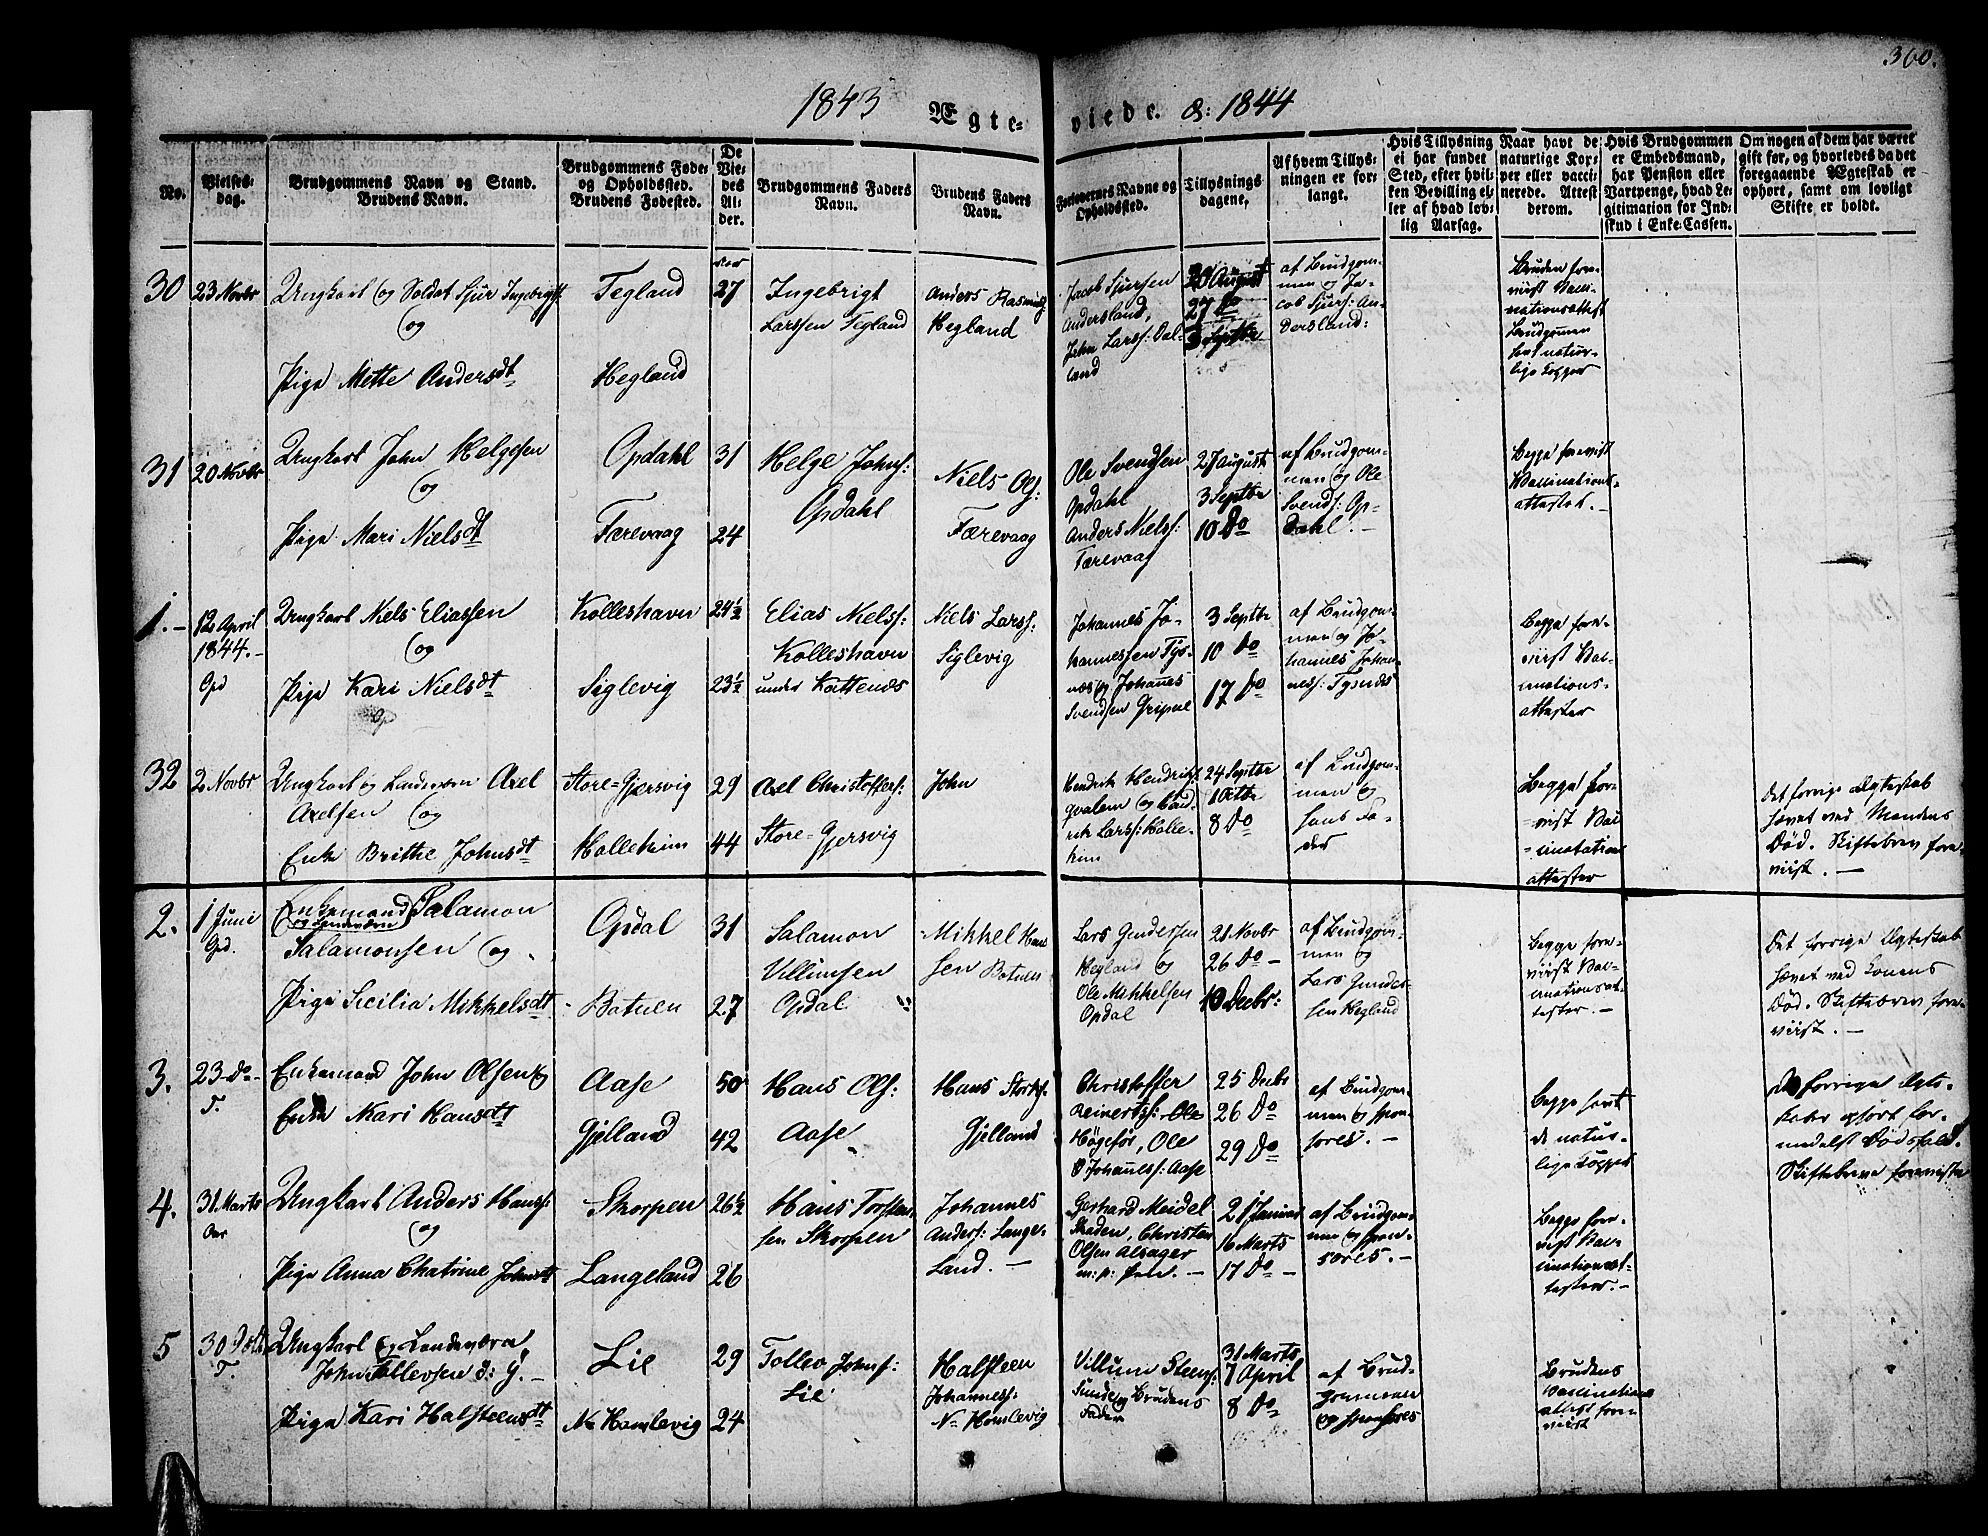 360.
1843 Ægte= viede. & 1844
No.
Vielses=
dag.
Brudgommens Navn og Stand.
Brudens Navn.
Brudgommens Føde=
og Opholdssted.
Brudens Fødested.
De
Vie=
des
Al=
der.
Brudgommens Faders
Navn.
Brudens Faders
Navn.
Forlovernes Navne og
Opholdssted.
Tillysnings
dagene,
Af hvem Tillys=
ningen er for=
langt.
Hvis Tillysning
ei har fundet
Sted, efter hvil=
ken Bevilling el=
ler af hvad lov=
lig Aarsag.
Naar havt de
naturlige Kop=
per eller vacci=
nerede. Attest
derom.
Hvis Brudgommen
er Embedsmand,
har Pension eller
Vartpenge, hvad Le=
gitimation for Ind=
skud i Enke=Cassen.
Om nogen af dem har været
gift før, og hvorledes da det
foregaaende Ægteskab er
ophørt, samt om lovligt
Skifte er holdt.
30
23 Novbr
Ungkarl og Soldat Sjur Ingebrigts:
og
Pige Mette Andersdt
Tegland
Hegland
27
Ingebrigt
Larssen Tegland
Anders Rasmus:
Hegland
Jacob Sjursen
Andersland,
John Larss: Dal=
land
20 August
27 do
3 Septbr
af Brudgom=
men og Ja=
cob Sjurs: An=
dersland:
Bruden fore=
viist Vacci=
nationsattest
Brudgommen
havt natur=
lige Kopper
31
20 Novbr
Ungkarl John Helgesen
og
Pige Mari Nielsdt
Opdahl
Færevaag
31
24
Helge Johns:
Opdahl
Niels Ols:
Færevaag
Ole Svendsen
Opdahl
Anders Niels:
Færevaag
27 August
3 Septbr
10 Do
af Brudgom=
men og Ole
Svends: Op=
dahl. –
Begge foreviist
Vaccinations=
attester. –
1. –
12 April
1844. –
Opd
Ungkarl Niels Eliassen
og
Pige Kari Nielsdt
Op
Kolleshavn
Siglevig
24½
23½
Elias Niels:
Kolleshavn
under Kattenæs
Niels Larss:
Siglevig
Johannes Jo=
hannessen Tys=
næs og Johannes
Svendsen Gripne
3 Septbr
10 Do
17 Do
af Brudgom=
men og Jo=
hannes Johan=
ness: Tysnæs
Begge fore=
viist Vac=
cinations=
attester
32
2 Novbr
Ungkarl og Landeværn Axel
Axelsen og
Enke Brithe Johnsdt
Store=Gjersvig
Holleheim
29
44
Axel Christoffers:
Store=Gjersvig
John
Hendrik Hendriks:
Hvalem og End=
rik Larss: Holle=
heim
24 Septbr
1 Octbr
8 Do
af Brudgom=
men og
hans Fa=
der
Begge fore=
viist Vac=
cinations
attester
Det forrige Ægteskab
hævet ved Mandens
Død. Skiftebrev fore=
viist. –
2.
1 Juni
Opd.
Enkemand Salamon
og Landeværn
Salamonsen og
Pige Sicilia Mikkelsdt
Opdal
Batuen
31
27
Salamon
Villumsen
Opdal
Mikkel Han=
sen Batuen
Lars Gundersen
Hegland og
Ole Mikkelsen
Opdal
21 Novbr
26 Do –
10 Decbr:
af Brudgom=
men og
Lars Gunder=
sen Hegland
Begge fore=
viist Vac=
cinationsat=
tester. –
Det forrige Ægteskab
hævet ved Konens
Død. Skiftebrev fore=
viist. –
3.
23 Do
T.
Enkemand John Olsen og
Enke Kari Hansdt
Aase
Gjelland
50
42
Hans Ols:
Aase
Hans Storks:
Gjelland
Christoffer
Reinerts: Ole
Högeför, Ole
Johanness: Aase
25 Decbr
26 Do
29 Do
af Brudgom=
men og spon=
sores. –
Begge havt
de natur=
lige Kopper
De forrige Ægte=
skaber ophørt for=
medelst Dødsfald.
Skiftebreve foreviste
4.
31 Marts
Ungkarl Anders Hans:
og
Pige Anna Chatrine Johansdt
Skorpen
Langeland
26½
26
Hans Torsten=
sen Skorpen
Johannes
Anders: Lange=
land. –
Gerhard Meidel
Skaden, Christen
Olsen Alsager
m: p: Pen. –
21 Januar
16 Marts
17 Do –
af Brudgom=
men og spon=
sores. –
Begge fore=
viist Vac=
cinationsat=
tester. –
5
30
T.
Ungkarl og Landeværn
John Tollevsen d: y. –
Pige Kari Halsteensdt
Lie
N. Hamlevig
29
24
Tollev Johns:
Lie
Halsteen
Johanness:
N. Hamlevig
Villum Steens:
Sunde og Brudens
Fader
31 Marts
7 April
8 Do
af Brud=
gommen
og sponsores
Brudens
Vaccinations
attest fore=
viist